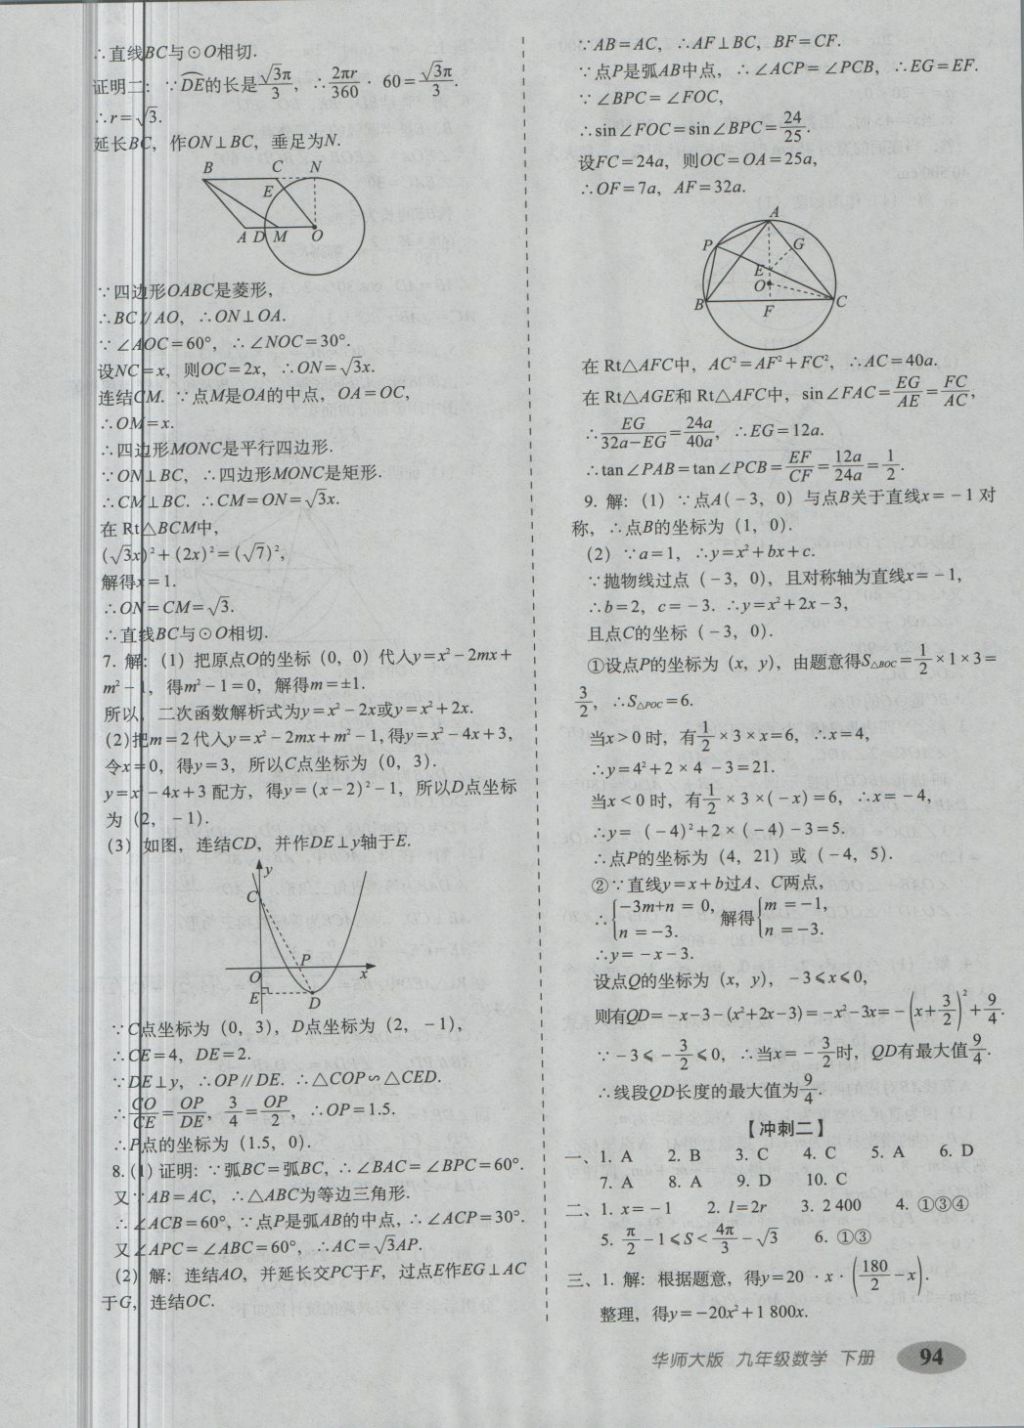 ∴直线BC与⊙O相切.
证明二：∵DE的长是√3π/3，∴2πr/360 · 60=√3π/3.
∴r=√3.
延长BC，作ON⊥BC，垂足为N.
B C N
E
A D M O
∵四边形OABC是菱形，
∴BC∥AO，∴ON⊥OA.
∵∠AOC=60°，∴∠NOC=30°.
设NC=x，则OC=2x，∴ON=√3x.
连结CM. ∵点M是OA的中点，OA=OC，
∴OM=x.
∴四边形MONC是平行四边形.
∵ON⊥BC，∴四边形MONC是矩形.
∴CM⊥BC. ∴CM=ON=√3x.
在 Rt△BCM中，
(√3x)²+(2x)²=(√7)²，
解得x=1.
∴ON=CM=√3.
∴直线BC与⊙O相切.
7. 解：(1) 把原点O的坐标 (0，0) 代入y=x²-2mx+
m²-1，得m²-1=0，解得m=±1.
所以，二次函数解析式为y=x²-2x或y=x²+2x.
(2)把m=2代入y=x²-2mx+m²-1,得y=x²-4x+3，
令x=0，得y=3，所以C点坐标为 (0，3).
y=x²-4x+3 配方，得y=(x-2)²-1，所以D点坐标
为 (2，-1).
(3) 如图，连结CD，并作DE⊥y轴于E.
y
C
O P x
E D
∵C点坐标为 (0，3)，D点坐标为 (2，-1)，
∴CE=4，DE=2.
∵DE⊥y，∴OP∥DE. ∴△COP∽△CED.
∴CO/CE=OP/DE，3/4=OP/2，∴OP=1.5.
∴P点的坐标为 (1.5，0).
8. (1) 证明：∵弧BC=弧BC，∴∠BAC=∠BPC=60°.
又∵AB=AC，∴△ABC为等边三角形.
∴∠ACB=60°，∵点P是弧AB的中点，∴∠ACP=30°.
又∠APC=∠ABC=60°，∴AC=√3AP.
(2) 解：连结AO，并延长交PC于F，过点E作EG⊥AC
于G，连结OC.
∵AB=AC，∴AF⊥BC，BF=CF.
∵点P是弧AB中点，∴∠ACP=∠PCB，∴EG=EF.
∵∠BPC=∠FOC，
∴sin∠FOC=sin∠BPC=24/25.
设FC=24a，则OC=OA=25a，
∴OF=7a，AF=32a.
A
P G
E
O
B F C
在 Rt△AFC中，AC²=AF²+FC²，∴AC=40a.
在 Rt△AGE和 Rt△AFC中，sin∠FAC=EG/AE=FC/AC，
∴EG/(32a-EG)=24a/40a，∴EG=12a.
∴tan∠PAB=tan∠PCB=EF/CF=12a/24a=1/2.
9. 解：(1) ∵点A(-3，0) 与点B关于直线x=-1 对
称，∴点B的坐标为 (1，0).
(2) ∵a=1，∴y=x²+bx+c.
∵抛物线过点 (-3，0)，且对称轴为直线x=-1，
∴b=2，c=-3. ∴y=x²+2x-3，
且点C的坐标 (-3，0).
①设点P的坐标为 (x，y)，由题意得S△BOC=1/2×1×3=
3/2，∴S△POC=6.
当x>0 时，有1/2×3×x=6，∴x=4，
∴y=4²+2×4 -3=21.
当x<0 时，有1/2×3×(-x)=6，∴x=-4，
∴y= (-4)²+2×(-4)-3=5.
∴点P的坐标为 (4，21) 或 (-4，5).
②∵直线y=x+b过A、C两点，
∴{-3m+n = 0, n =-3. 解得{m =-1, n =-3.
∴y=-x-3.
设点Q的坐标为 (x，y)，-3≤x≤0，
则有QD=-x-3-(x²+2x-3)=-x²-3x=-(x+3/2)²+9/4.
∵-3≤-3/2≤0，∴当x=-3/2时，QD有最大值9/4.
∴线段QD长度的最大值为9/4.
【冲刺二】
一、1. A 2. B 3. C 4. C 5. A 6. D
7. A 8. A 9. D 10. C
二、1. x=-1 2. l=2r 3. 2 400 4. ①③④
5. π/2-1≤S<4π/3-√3 6. ①③
三、1. 解：根据题意，得y=20 · x · (180/2-x).
整理，得y=-20x²+1 800x.
华师大版 九年级数学 下册 94